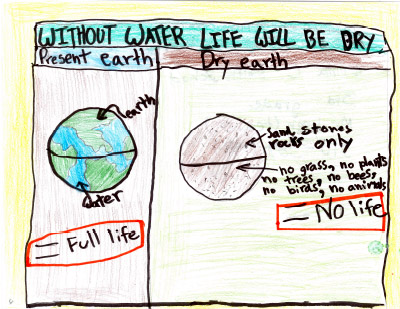 WITHOUT WATER LIFE WILL BE DRY.
Present earth
Dry earth
earth
water
= Full life
sand, stones,
rocks only
no grass, no plants
no trees, no bees,
no birds, no animals
= No life